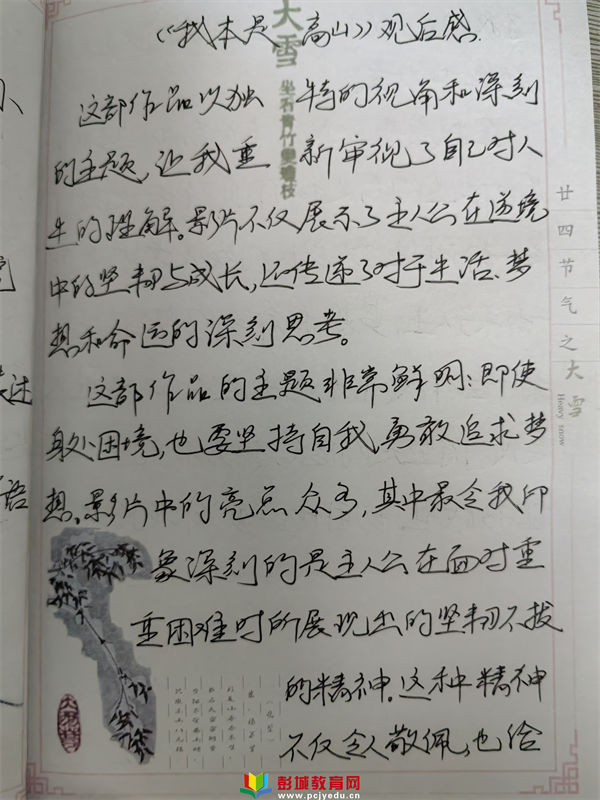 《我本是高山》观后感
大雪
坐看青竹变琼枝
这部作品以独特的视角和深刻
的主题,让我重新审视了自己对人
生的理解。影片不仅展示了主人公在逆境
中的坚韧与成长,还传递了对于生活、梦
想和命运的深刻思考。
这部作品的主题非常鲜明:即使
身处困境,也要坚持自我,勇敢追求梦
想。影片中的亮点众多,其中最令我印
象深刻的是主人公在面对重
重困难时所展现出的坚韧不拔
的精神。这种精神
不仅令人敬佩,也给
廿四节气之大雪
Heavy snow
述
语
彭城教育网
www.pcjyedu.cn